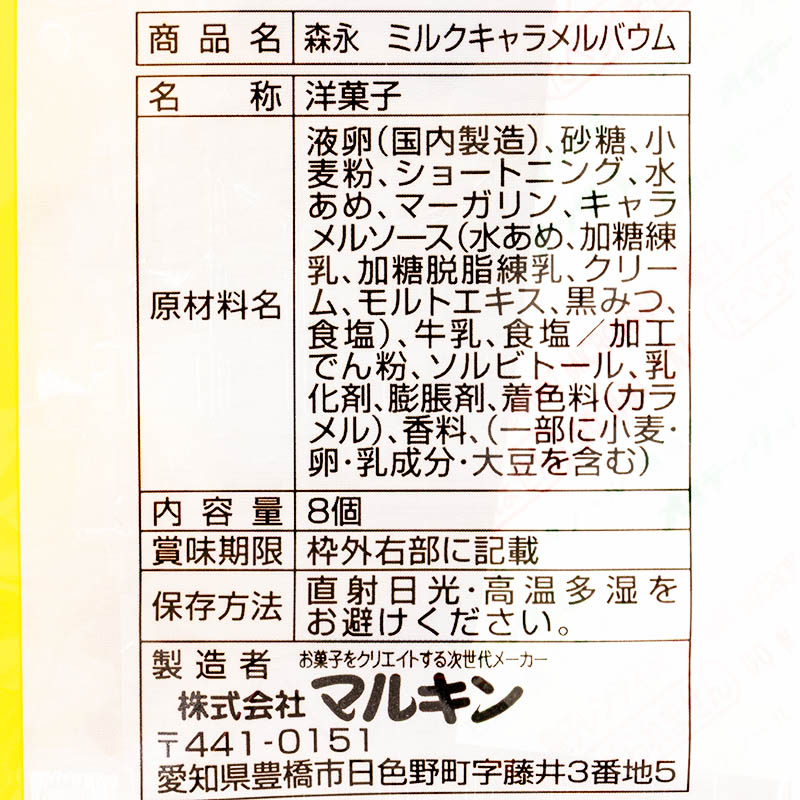 商品名 森永 ミルクキャラメルバウム
名称 洋菓子
原材料名
液卵(国内製造)、砂糖、小
麦粉、ショートニング、水
あめ、マーガリン、キャラ
メルソース(水あめ、加糖練
乳、加糖脱脂練乳、クリー
ム、モルトエキス、黒みつ、
食塩)、牛乳、食塩／加工
でん粉、ソルビトール、乳
化剤、膨脹剤、着色料(カラ
メル)、香料、(一部に小麦・
卵・乳成分・大豆を含む)
内容量 8個
賞味期限 枠外右部に記載
保存方法 直射日光・高温多湿を
お避けください。
製造者 お菓子をクリエイトする次世代メーカー
株式会社マルキン
〒441-0151
愛知県豊橋市日色野町字藤井3番地5